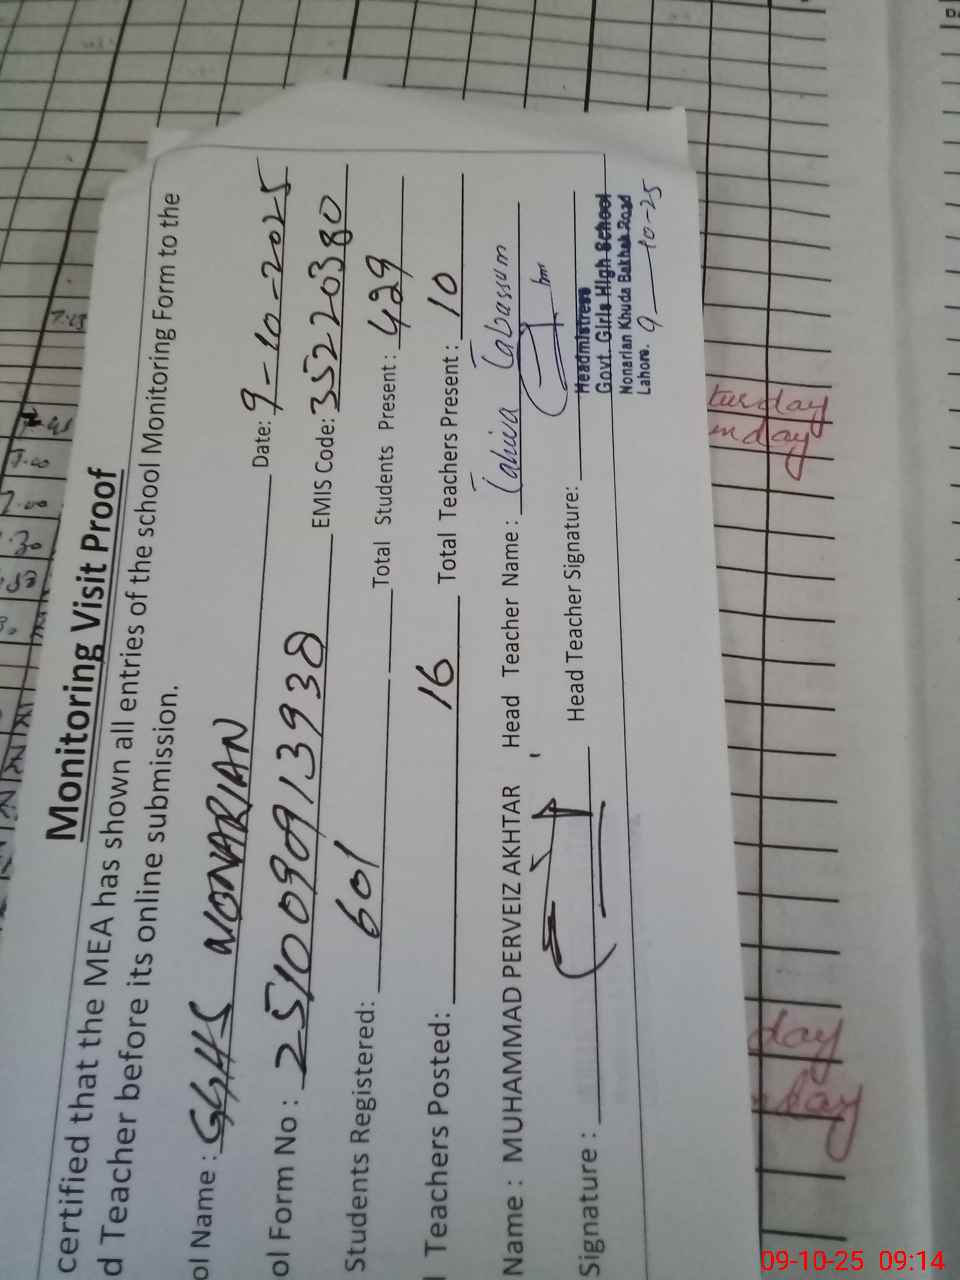 Monitoring Visit Proof
certified that the MEA has shown all entries of the school Monitoring Form to the
d Teacher before its online submission.
ol Name : GGHS NONARIAN Date: 9-10-2025
ol Form No : 2510090913938 EMIS Code: 35220380
Students Registered: 601 Total Students Present : 429
l Teachers Posted: 16 Total Teachers Present : 10
Name : MUHAMMAD PERVEIZ AKHTAR Head Teacher Name : Tahira Tabassum
Signature : Head Teacher Signature:
Headmistress
Govt. Girls High School
Nonarian Khuda Bakhsh Road
Lahore. 9-10-25
7:45
7.00
turday
nday
day
day
09-10-25 09:14